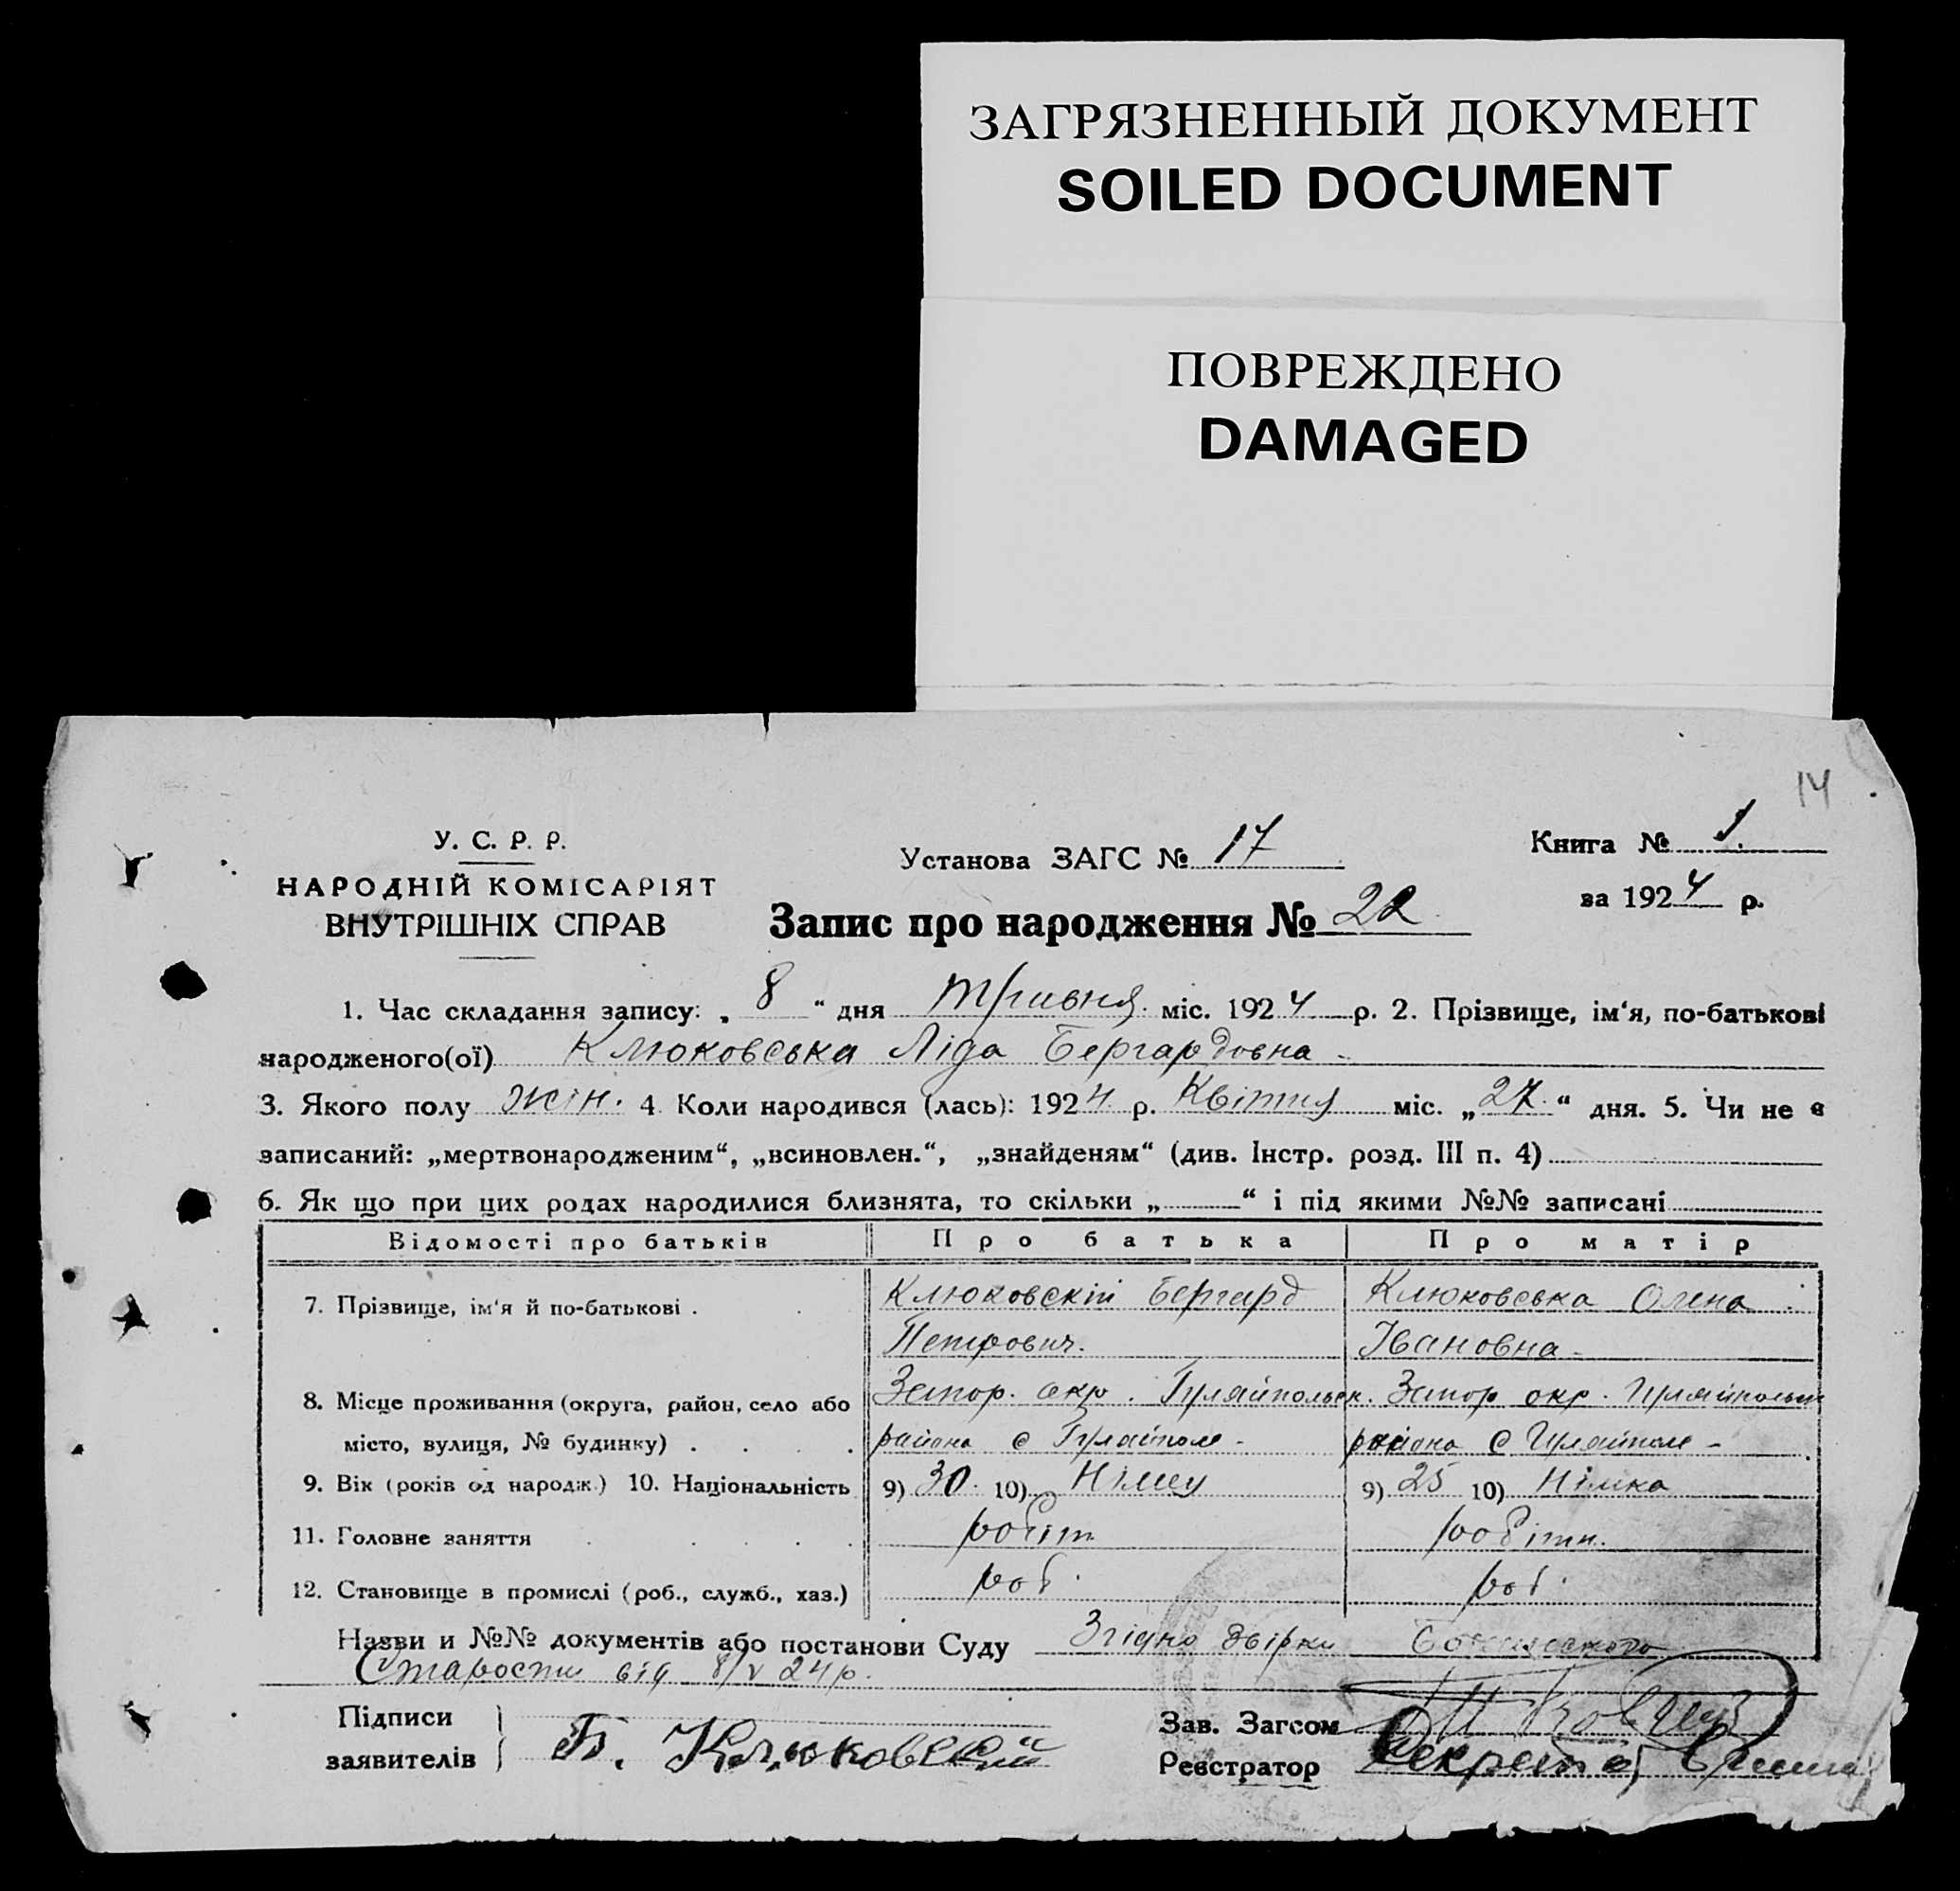 ЗАГРЯЗНЕННЫЙ ДОКУМЕНТ
SOILED DOCUMENT
ПОВРЕЖДЕНО
DAMAGED
14
У. С. Р. Р.
НАРОДНІЙ КОМІСАРІЯТ
ВНУТРІШНІХ СПРАВ
Установа ЗАГС № 17
Книга № 1.
за 1924 р.
Запис про народження № 22
1. Час складання запису: „ 8 “ дня Травня міс. 1924 р. 2. Прізвище, ім‘я, по-батькові
народженого(ої) Клюковська Ліда Бергардовна
3. Якого полу жін. 4 Коли народився (лась): 1924 р. Квітня міс. „27“ дня. 5. Чи не є
записаний: „мертвонародженим“, „всиновлен.“, „знайденям“ (див. Інстр. розд. III п. 4)
6. Як що при цих родах народилися близнята, то скільки „ “ і під якими №№ записані
Відомості про батьків Про батька Про матір
7. Прізвище, ім‘я й по-батькові . Клюковскій Бергард Клюковська Олена
Петрович. Івановна
8. Місце проживання (округа, район, село або Запор. окр. Гуляйпольск. Запор окр. Гуляйпольск
місто, вулиця, № будинку) . . . . района с Гуляйполе - района с Гуляйполе -
9. Вік (років од народж.) 10. Національність 9) 30. 10) Німец 9) 25 10) Німка
11. Головне заняття робітн робітн.
12. Становище в промислі (роб., служб., хаз.) роб. роб.
Назви и №№ документів або постанови Суду Згідно
Старости від 8/V 24 р.
Підписи
заявителів } Б. Клюковскій
Зав. Загсом
Реєстратор Секретар